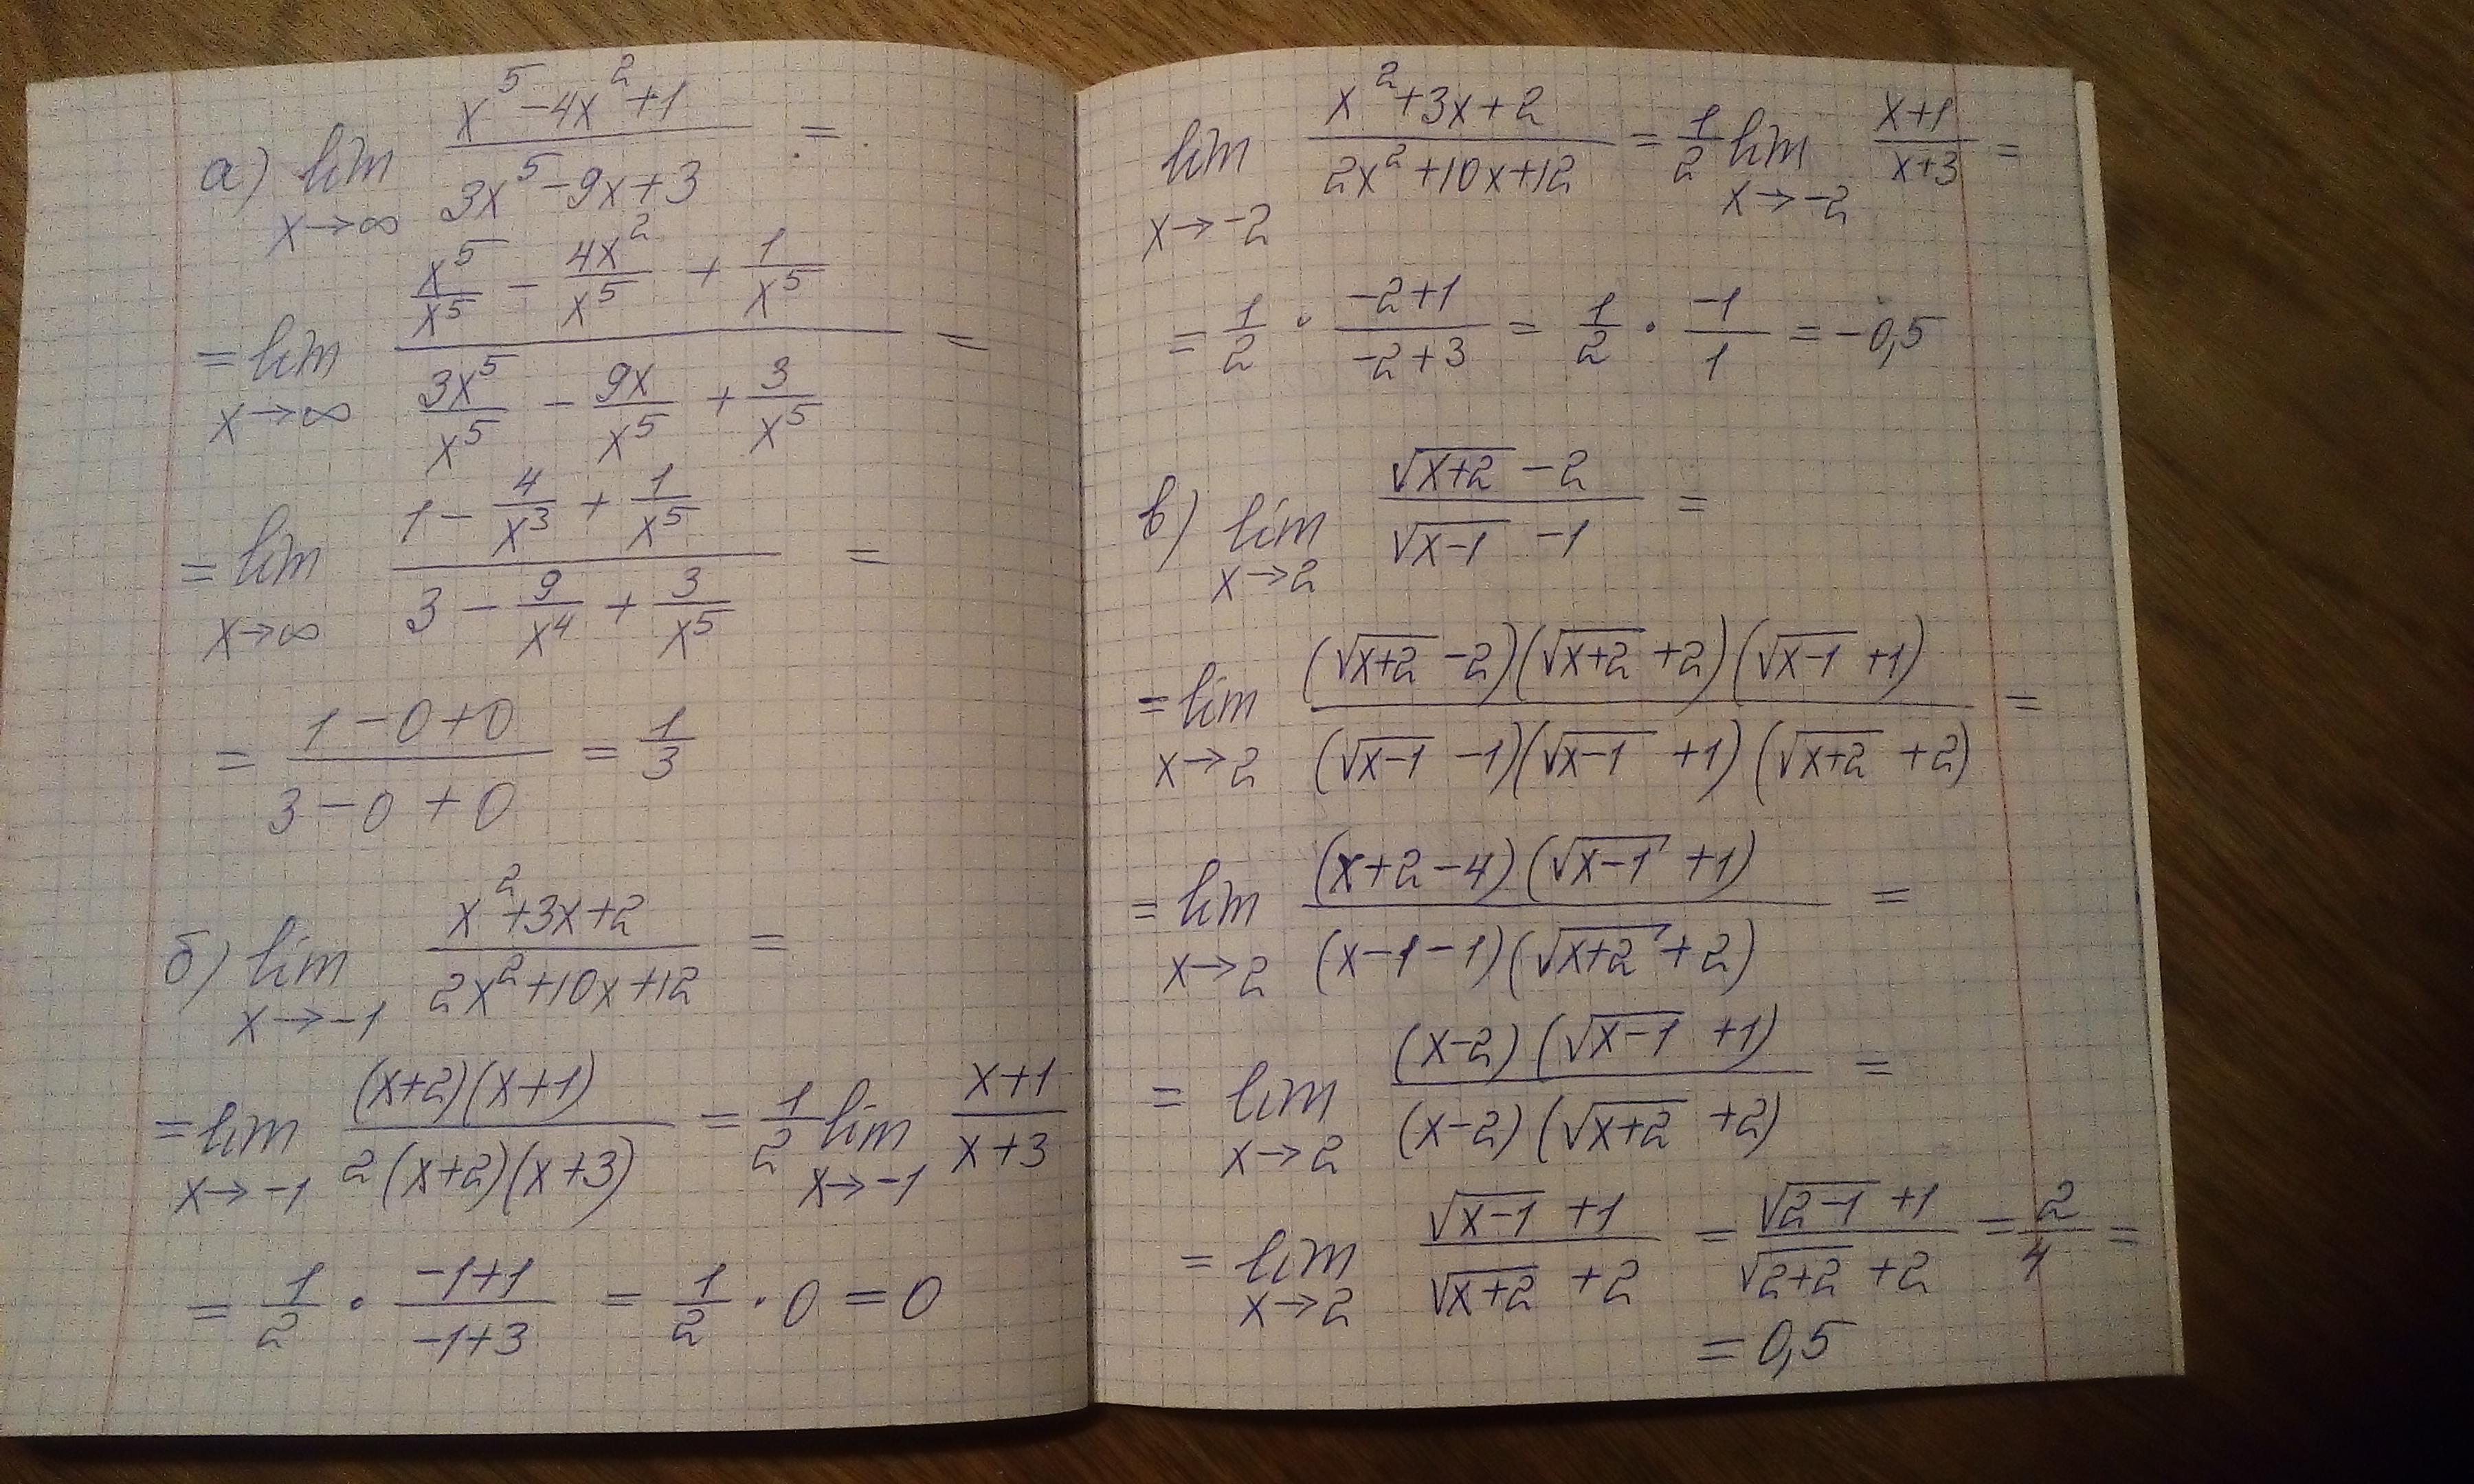 а) lim x→∞ (x⁵ − 4x² + 1)/(3x⁵ − 9x + 3) =
= lim x→∞ (x⁵/x⁵ − 4x²/x⁵ + 1/x⁵)/(3x⁵/x⁵ − 9x/x⁵ + 3/x⁵) =
= lim x→∞ (1 − 4/x³ + 1/x⁵)/(3 − 9/x⁴ + 3/x⁵) =
= (1 − 0 + 0)/(3 − 0 + 0) = 1/3
б) lim x→−1 (x² + 3x + 2)/(2x² + 10x + 12) =
= lim x→−1 (x+2)(x+1)/(2(x+2)(x+3)) = 1/2 lim x→−1 (x+1)/(x+3)
= 1/2 · (−1+1)/(−1+3) = 1/2 · 0 = 0
lim x→−2 (x² + 3x + 2)/(2x² + 10x + 12) = 1/2 lim x→−2 (x+1)/(x+3) =
= 1/2 · (−2+1)/(−2+3) = 1/2 · (−1)/1 = −0,5
в) lim x→2 (√(x+2) − 2)/(√(x−1) − 1) =
= lim x→2 (√(x+2) − 2)(√(x+2) + 2)(√(x−1) + 1)/((√(x−1) − 1)(√(x−1) + 1)(√(x+2) + 2)) =
= lim x→2 (x+2−4)(√(x−1) + 1)/((x−1−1)(√(x+2) + 2)) =
= lim x→2 (x−2)(√(x−1) + 1)/((x−2)(√(x+2) + 2)) =
= lim x→2 (√(x−1) + 1)/(√(x+2) + 2) = (√(2−1) + 1)/(√(2+2) + 2) = 2/4 =
= 0,5